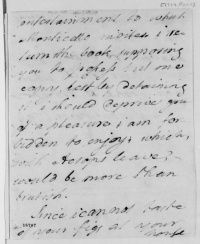 entertainment to which
Monticello invites I re-
turn the book, supposing
you to possess but one
copy, lest by detaining
it I should deprive you
of a pleasure I am for-
bidden to enjoy, which,
would be more than
brutish.
Since I cannot taste
of your figs at your